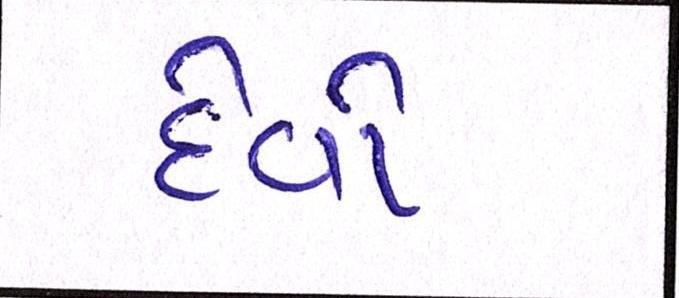 દેવો